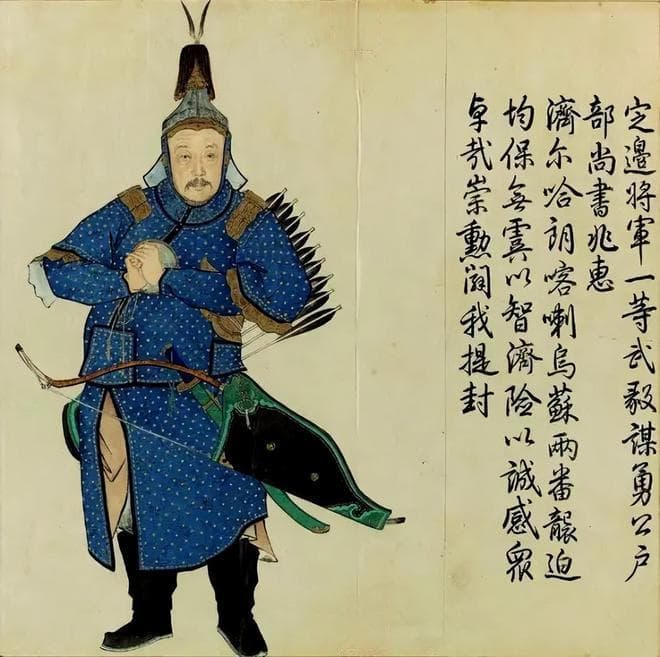 定邊將軍一等武毅謀勇公户
部尚書兆惠
濟尔哈朗喀喇烏蘇兩番襲迫
均保無虞以智濟險以誠感衆
卓哉崇勲闢我提封